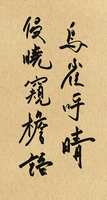 鳥雀呼晴
侵曉窺檐語